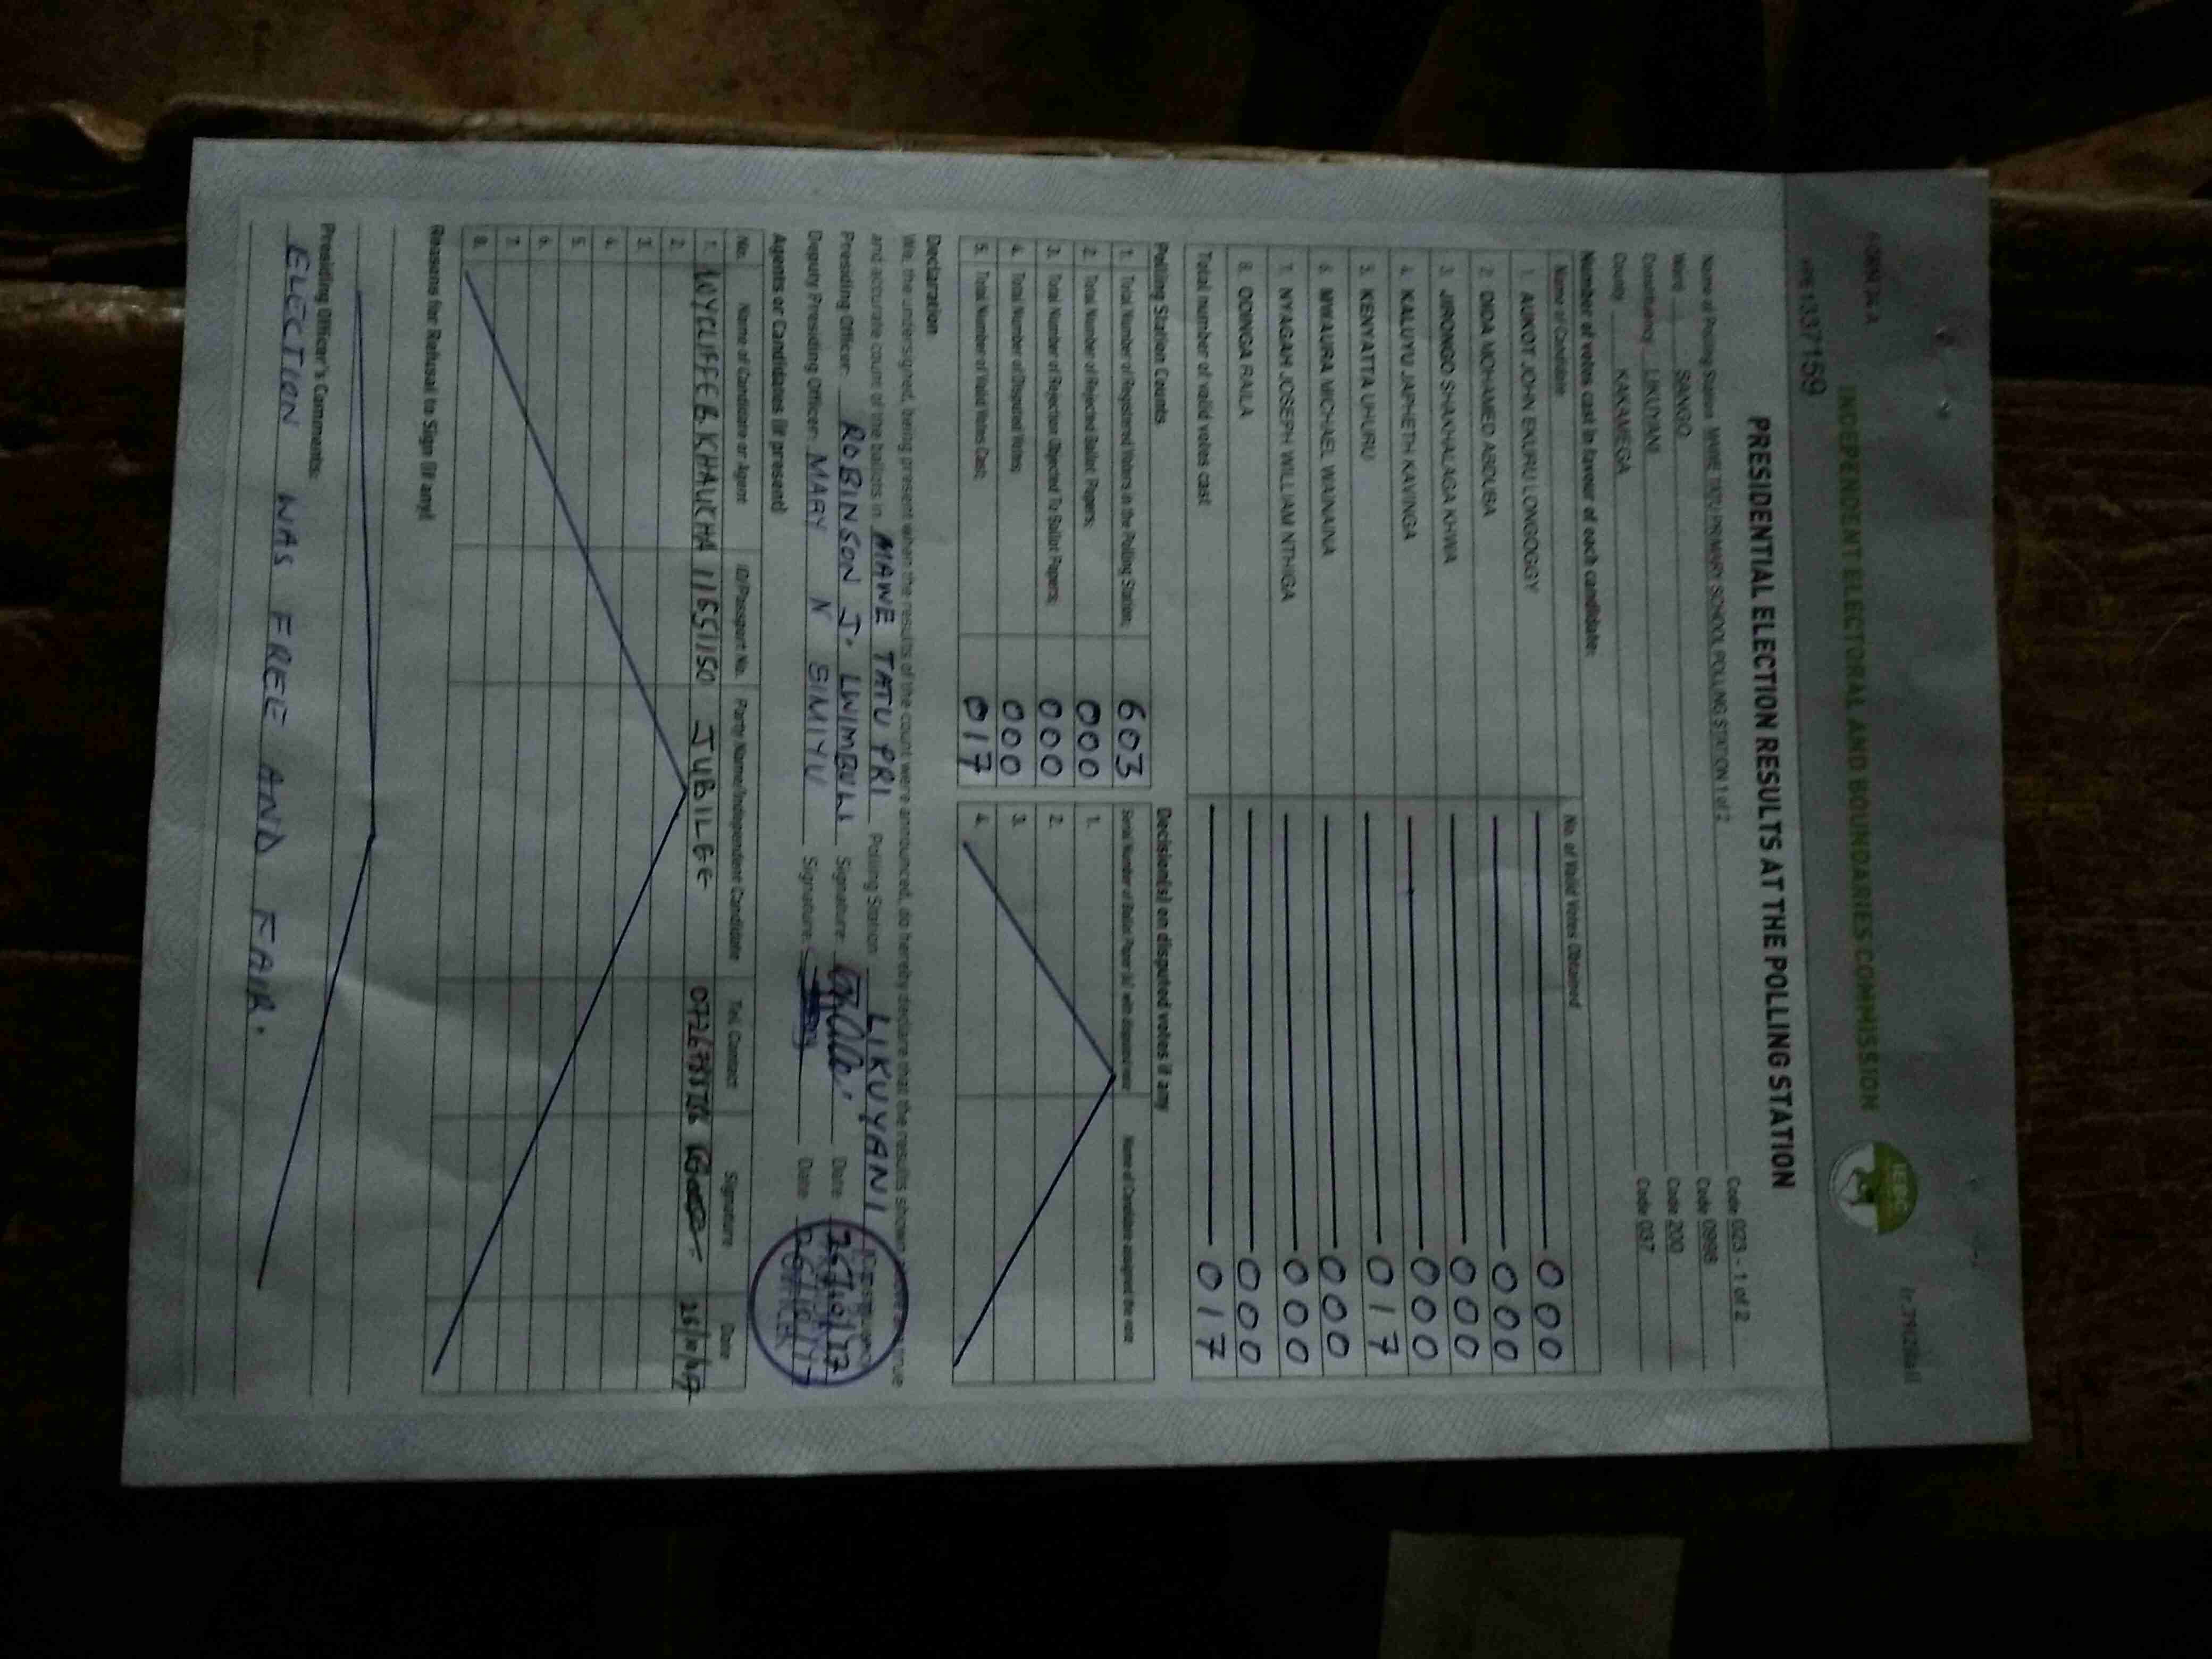 FORM 34 A
INDEPENDENT ELECTORAL AND BOUNDARIES COMMISSION
IEBC
PRESIDENTIAL ELECTION RESULTS AT THE POLLING STATION
Name of Polling Station TATU PRIMARY SCHOOL POLLING STATION 1 of 2 Code 023 - 1 of 2
Ward SANGO Code 0998
Constituency LIKUYANI Code 200
County KAKAMEGA Code 037
Number of votes cast in favour of each candidate:
Name of Candidate No. of Valid Votes Obtained
1. AUKOT JOHN EKURU LONGOGGY 000
2. DIDA MOHAMED ABDUBA 000
3. JIRONGO SHAKHALAGA KHWA 000
4. KALUYU JAPHETH KAVINGA 000
5. KENYATTA UHURU 017
6. MWAURA MICHAEL WAINAINA 000
7. NYAGAH JOSEPH WILLIAM NTHIGA 000
8. ODINGA RAILA 000
Total number of valid votes cast 017
Polling Station Counts
1. Total Number of Registered Voters in the Polling Station; 603
2. Total Number of Rejected Ballot Papers; 000
3. Total Number of Rejection Objected To Ballot Papers; 000
4. Total Number of Disputed Votes; 000
5. Total Number of Valid Votes Cast; 017
Decision(s) on disputed votes if any
Serial Number of Ballot Paper (s) with disputed vote Name of Candidate assigned the vote
1.
2.
3.
4.
Declaration
We, the undersigned, being present when the results of the count were announced, do hereby declare that the results shown above are true
and accurate count of the ballots in MAWE TATU PRI Polling Station LIKUYANI Constituency
Presiding Officer: ROBINSON J. Signature: Date 26/10/17
Deputy Presiding Officer: MARY N SIMIYU Signature: Date 26/10/17
Agents or Candidates (if present)
No. Name of Candidate or Agent ID/Passport No. Party Name/Independent Candidate Tel. Contact Signature Date
1. WYCLIFFE B. KHAUCHA 11651150 JUBILEE 26/10/17
2.
3.
4.
5.
6.
7.
8.
Reasons for Refusal to Sign (if any)
Presiding Officer's Comments:
ELECTION WAS FREE AND FAIR.